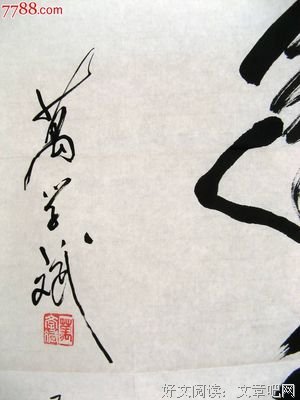 7788.com
萬学斌
好文阅读：文章吧网